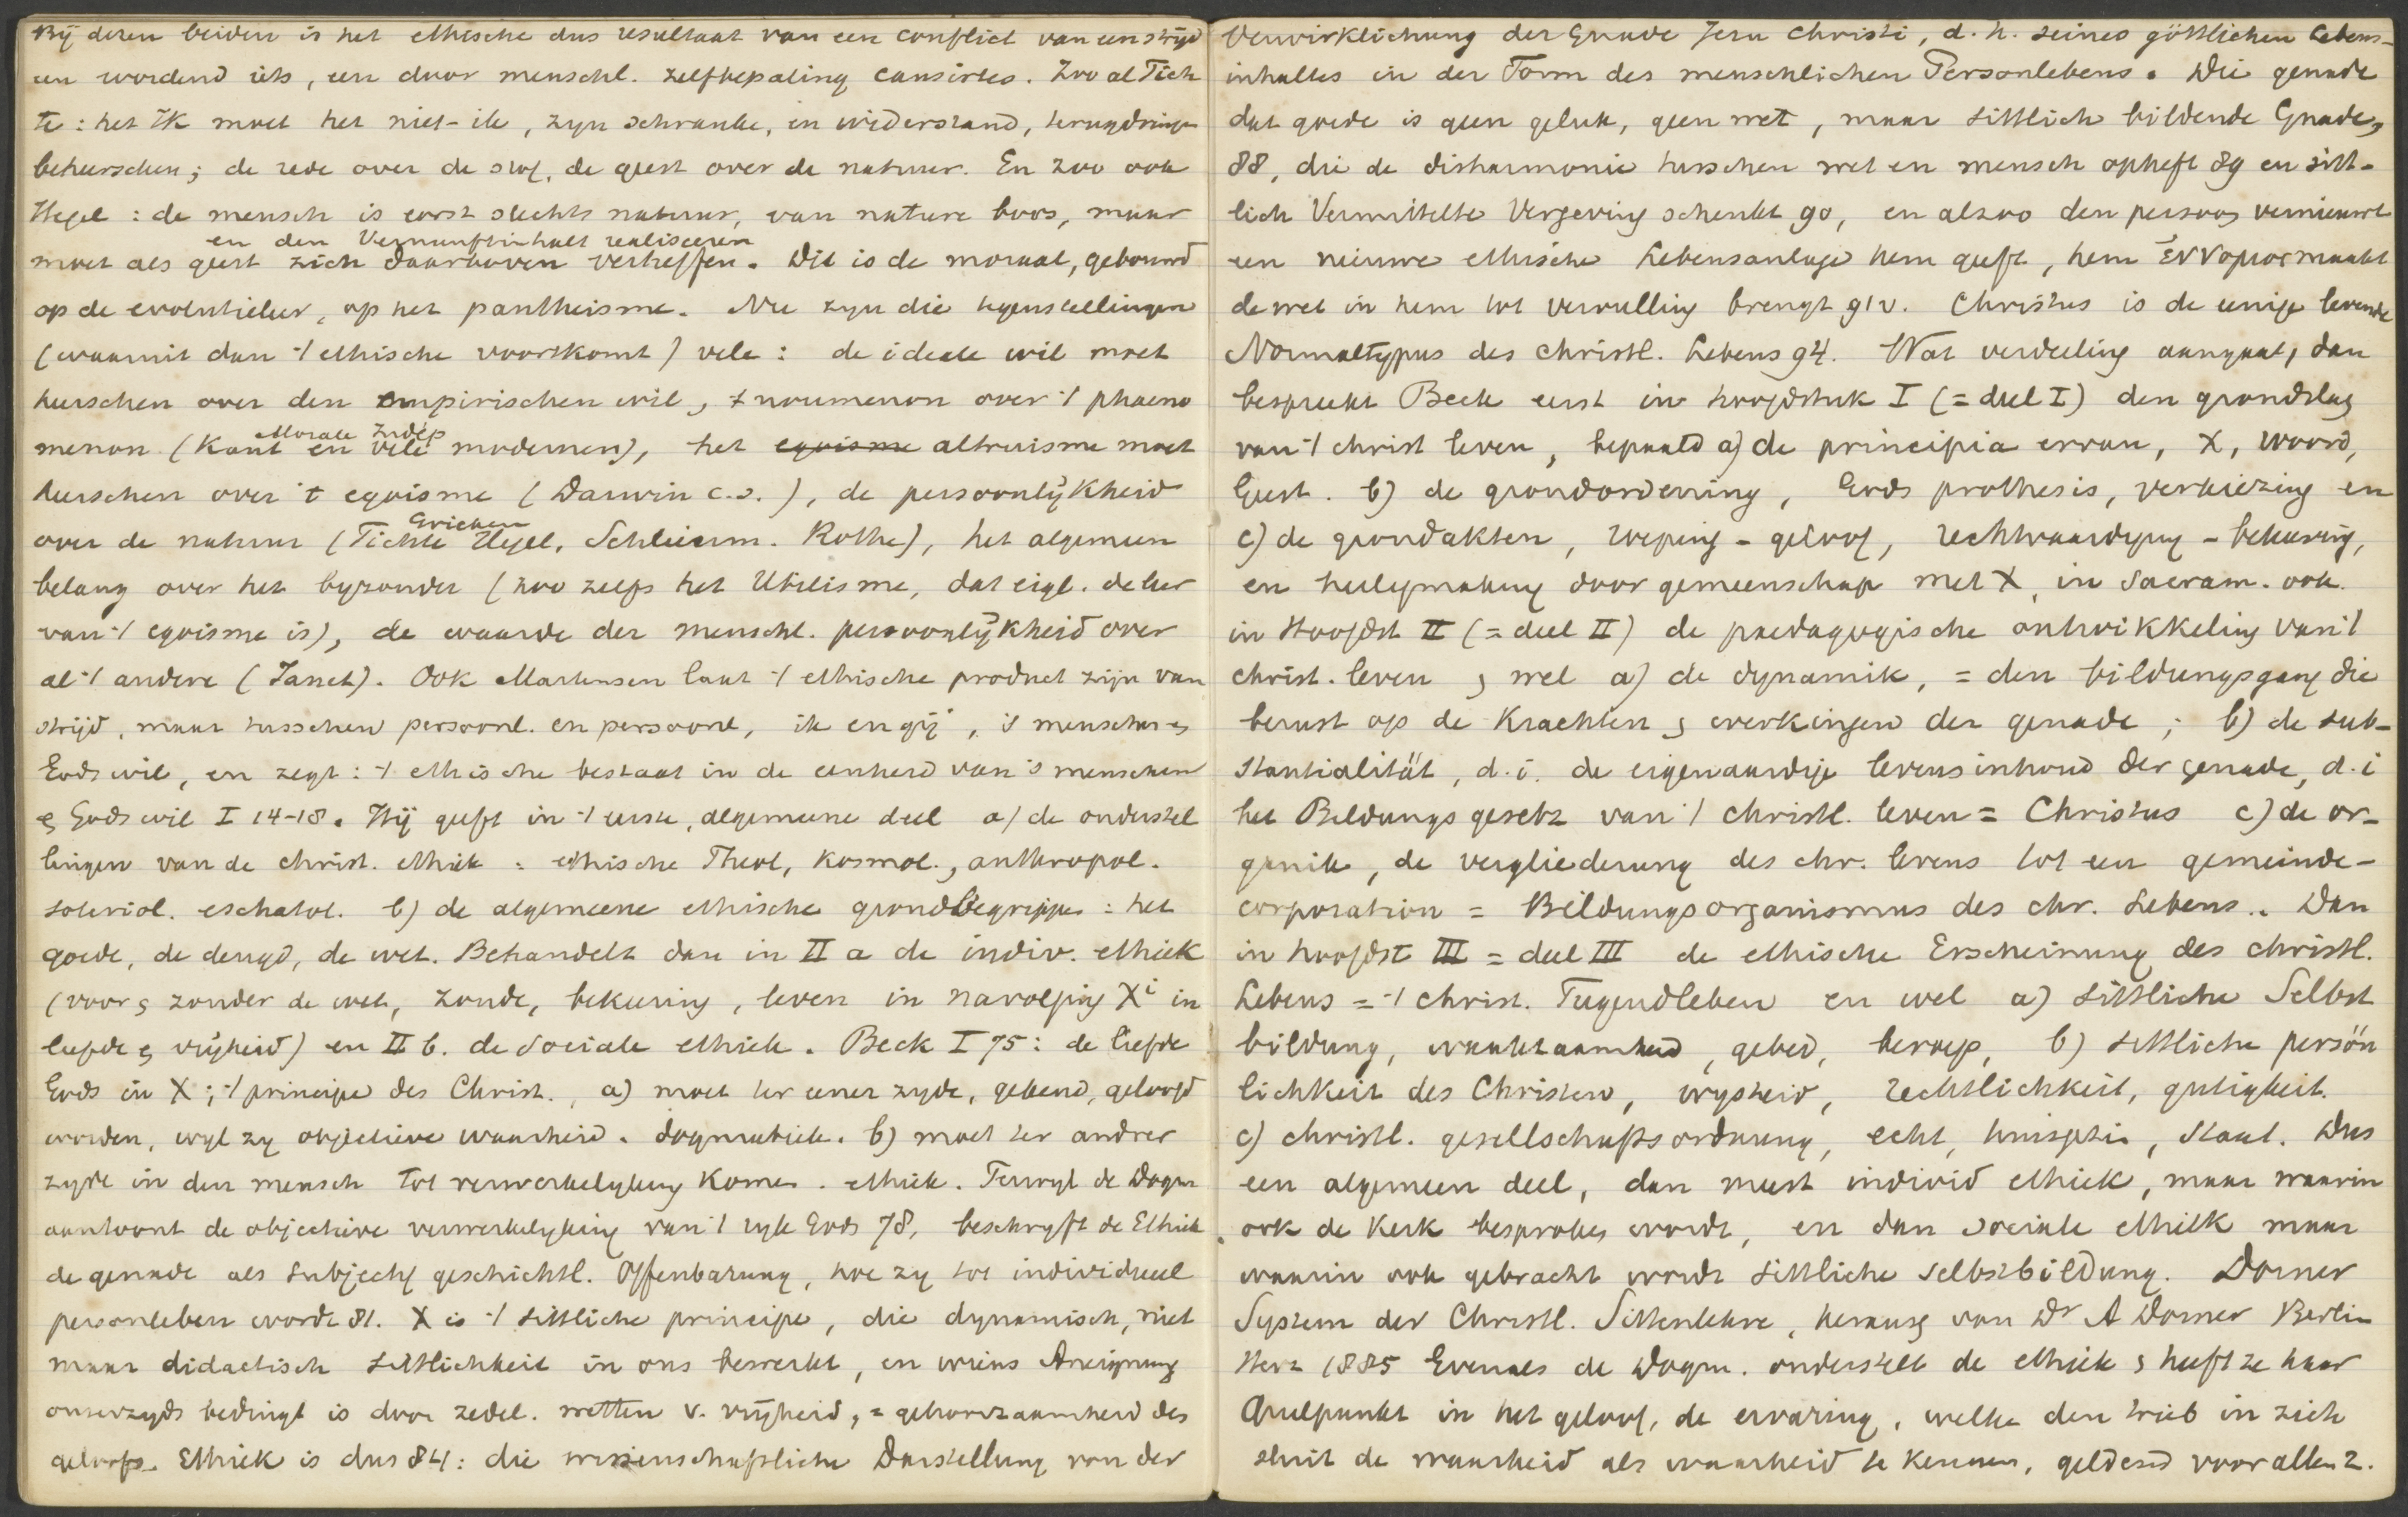 Bij dezen beiden is het ethische dus resultaat van een conflict van een strijd
een wordend iets, een door menschl. zelfbepaling causirtes. Zoo al Fich
te: het Ik moet het niet-ik, zyn schranke, en widerstand, terugdringen
beheerschen; de rede over de stof, de geest over de natuur. En zoo ook
Hegel: de mensch is eerst slechts natuur, van nature boos, maar
en den Vernunftinhalt realiseeren
moet als geest zich daarboven verheffen. Dit is de moraal, gebouwd
op de evolutieleer, op het pantheisme. Nu zyn die tegenstellingen
(waaruit dan 't ethische voortkomt) vele: de ideale wil moet
heerschen over den empirischen wil, 't noumenon over 't phaeno
Morale Indép
menon (Kant en vele modernen), het egoisme altruisme moet
heerschen over 't egoisme (Darwin c.s.), de persoonlijkheid
Grieken
over de natuur (Fichte Hegel, Schleierm. Rothe), het algemeen
belang over het byzonder (zoo zelfs het Utilisme, dat eigl. de leer
van 't egoisme is), de waarde der menschl. persoonlijkheid over
al 't andere (Janet). Ook Martensen laat 't ethische product zijn van
strijd, maar tusschen persoonl. en persoonl, ik en gij, 's menschen en
Gods wil, en zegt: 't ethische bestaat in de eenheid van 's menschen
en Gods wil I 14-18. Hij geeft in 't eerste, algemeene deel a) de onderstel
lingen van de christ. ethiek: ethische Theol, kosmol., anthropol.
soteriol. eschatol. b) de algemeene ethische grondbegrippen: het
goede, de deugd, de wet. Behandelt dan in II a de indiv. ethiek
(voor en zonder de wet, zonde, bekeering, leven in navolging Xi in
liefde en vrijheid) en II b. de sociale ethiek. Beck I 75: de liefde
Gods in X; 't principe des Christ., a) moet ter eener zyde, gekend, geloofd
worden, wyl zy objectieve waarheid. dogmatiek. b) moet ter andrer
zyde in den mensch tot verwerkelyking komen. ethiek. Terwyl de Dogm
aantoont de objectieve verwerkelyking van 't ryk Gods 78, beschryft de Ethiek
de genade als subjectif geschichtl. Offenbarung, hoe zy tot individueel
personleben wordt 81. X is 't sittliche principe, die dynamisch, niet
maar didactisch sittlichkeit in ons bewerkt, en wiens Aneignung
onzerzyds bedingt is door zedel. wetten v. vrijheid, = gehoorzaamheid des
geloofs. Ethiek is dus 84: die wissenschaftliche Darstellung von der
Verwirklichung der Gnade Jesu Christi, d.h. seines göttlichen Lebens-
inhaltes in der Form des menschlichen Personlebens. Die genade
dat goede is geen geluk, geen wet, maar sittlich bildende Gnade,
88, die de disharmonie tusschen wet en mensch opheft 89 en sitt-
lich Vermittelte Vergeving schenkt 90, en alzoo den persoon vernieuwt
een nieuwe ethische Lebensanlage hem geeft, hem ἔννομος maakt
de wet in hem tot vervulling brengt 91v. Christus is de eenige levende
Normaltypus des christl. Lebens 94. Wat verdeeling aangaat, dan
bespreekt Beck eerst in hoofdstuk I (= deel I) den grondslag
van 't christ leven, bepaald a) de principia ervan, X, woord,
Geest. b) de grondordening, Gods prothesis, verkiezing en
c) de grondakten, roeping - geloof, rechtvaardiging - bekeering,
en heiligmaking door gemeenschap met X, in Sacram. ook.
in Hoofdst II (= deel II) de paedagogische ontwikkeling van 't
christ. leven, wel a) de dynamik, = den bildungsgang die
berust op de krachten en werkingen der genade; b) de sub-
stantialität, d.i. de eigenaardige levensinhoud der genade, d.i
het Bildungsgesetz van 't christl. leven = Christus c) de or-
ganik, de vergliederung des chr. levens tot een gemeinde-
corporation = Bildungsorganismus des chr. Lebens. Dan
in hoofdst III = deel III de ethische Erscheinung des christl.
Lebens = 't christ. Tugendleben en wel a) sittliche Selbst
bildung, waakzaamheid, gebed, beroep, b) sittliche persön
lichkeit des Christen, wysheid, rechtlichkeit, gutigkeit.
c) christl. gesellschaftsordnung, echt, huisgezin, staat. Dus
een algemeen deel, dan meest individ ethiek, maar waarin
ook de kerk besproken wordt, en dan sociale ethiek maar
waarin ook gebracht wordt sittliche selbstbildung. Dorner
System der Christl. Sittenlehre, herausg von Dr A Dorner Berlin
Herz 1885 Evenals de Dogm. onderstelt de ethiek en heeft ze haar
Quelpunkt in het geloof, de ervaring, welke den trieb in zich
sluit de waarheid als waarheid te kennen, geldend voor allen 2.